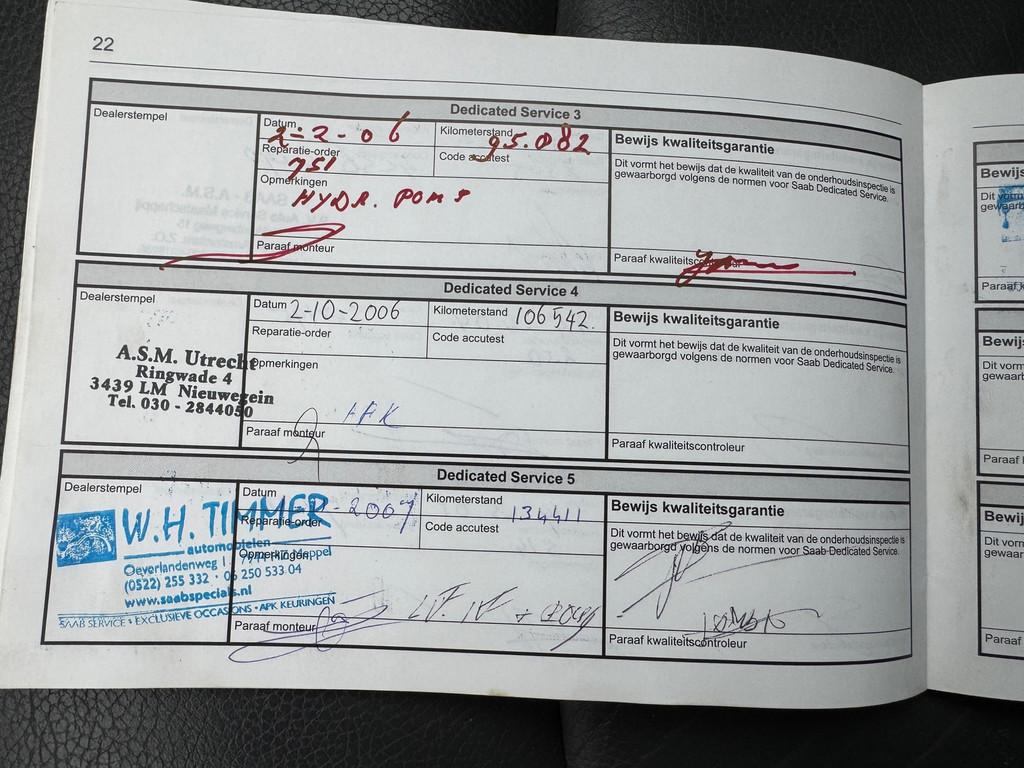 22
Dedicated Service 3
Dealerstempel
Datum 2-2-06
Kilometerstand 95.082
Reparatie-order 751
Code accutest
Opmerkingen
HYDR. POMP
Paraaf monteur
Bewijs kwaliteitsgarantie
Dit vormt het bewijs dat de kwaliteit van de onderhoudsinspectie is
gewaarborgd volgens de normen voor Saab Dedicated Service.
Paraaf kwaliteitscontroleur
Dedicated Service 4
Dealerstempel
A.S.M. Utrecht
Ringwade 4
3439 LM Nieuwegein
Tel. 030 - 2844050
Datum 2-10-2006
Kilometerstand 106542.
Reparatie-order
Code accutest
Opmerkingen
APK
Paraaf monteur
Bewijs kwaliteitsgarantie
Dit vormt het bewijs dat de kwaliteit van de onderhoudsinspectie is
gewaarborgd volgens de normen voor Saab Dedicated Service.
Paraaf kwaliteitscontroleur
Dedicated Service 5
Dealerstempel
W.H. TIMMER
automobielen
Oeverlandenweg 1 Meppel
(0522) 255 332 · 06 250 533 04
www.saabspecials.nl
SAAB SERVICE • EXCLUSIEVE OCCASIONS • APK KEURINGEN
Datum -2007
Kilometerstand 134411
Reparatie-order
Code accutest
Opmerkingen
Paraaf monteur
Bewijs kwaliteitsgarantie
Dit vormt het bewijs dat de kwaliteit van de onderhoudsinspectie is
gewaarborgd volgens de normen voor Saab Dedicated Service.
Paraaf kwaliteitscontroleur
Bewijs
Dit vorm
gewaarb
Paraaf k
Bewij
Dit vorm
gewaar
Paraaf
Bewij
Dit vorm
gewaar
Paraaf